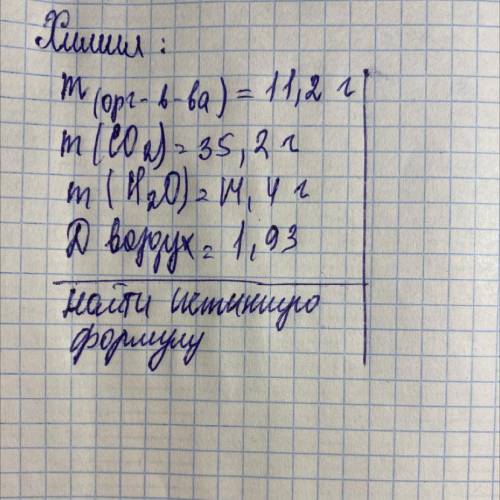 Химия:
m(орг-в-ва) = 11,2 г
m(CO2) = 35,2 г
m(H2O) = 14,4 г
D воздух = 1,93
найти истинную
формулу